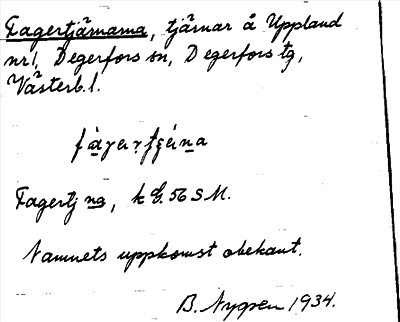 Fagertjärnarna, tjärnar å Uppland
nr1, Degerfors sn, Degerfors tg,
Västerb.l.
Fagertj na, k G. 56 S M.
Namnets uppkomst obekant.
B. Nygren 1934.